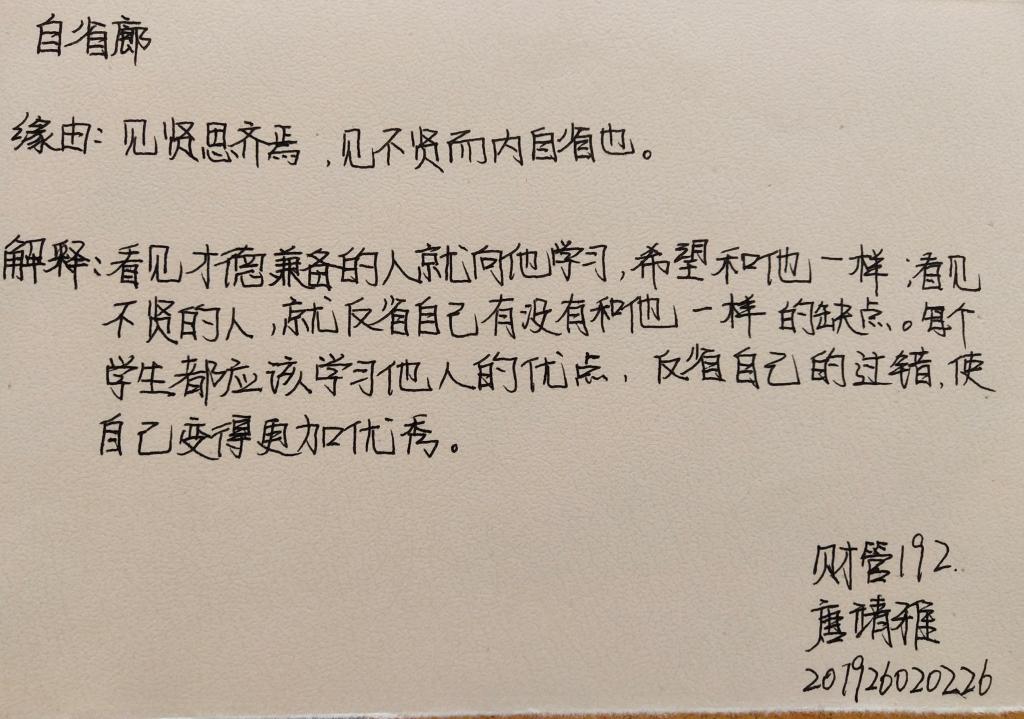 自省廊
缘由：见贤思齐焉，见不贤而内自省也。
解释：看见才德兼备的人就向他学习，希望和他一样；看见
不贤的人，就反省自己有没有和他一样的缺点。每个
学生都应该学习他人的优点，反省自己的过错，使
自己变得更加优秀。
财管192.
唐靖雅
201926020226